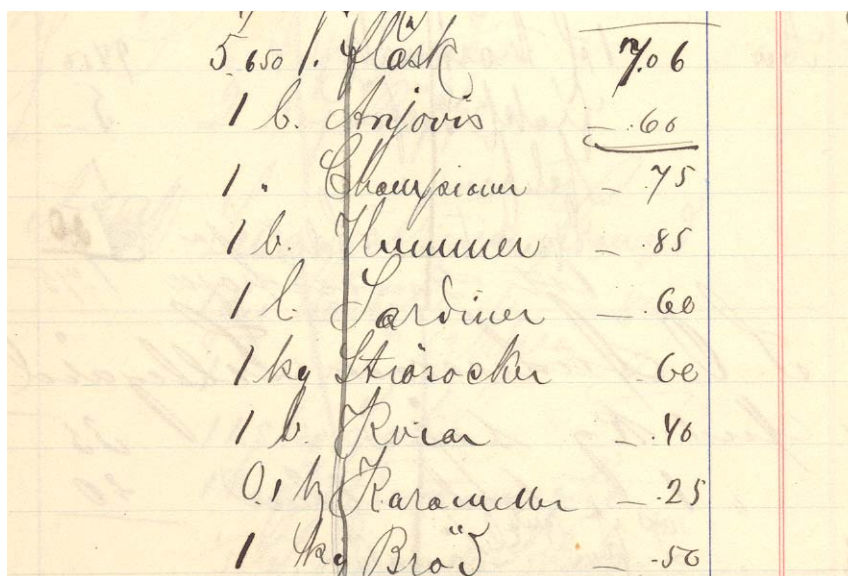 5.650 f. fläsk 7.06
1 b. Anjovis — .60
1 " Championer — .75
1 b. Hummer — .85
1 b. Sardiner — .60
1 kg Strösocker .60
1 b. Kvrar — .40
0,1 kg Karameller — .25
1 kg Bröd — .50